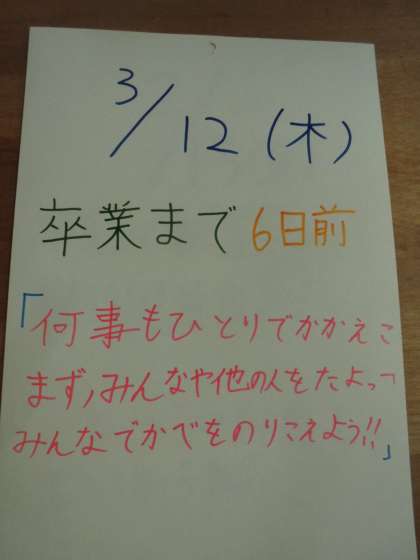 3/12(木)
卒業まで6日前
「何事もひとりでかかえこ
まず,みんなや他の人をたよって
みんなでかべをのりこえよう!!」